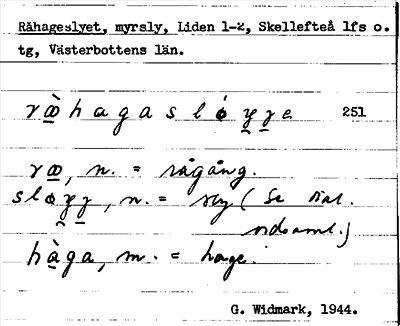 Råhageslyet, myrsly, Liden 1-2, Skellefteå lfs o.
tg, Västerbottens län.
251
, n. = rågång.
, n. = sly (se dial.
ordsaml.)
hàga, m. = hage.
G. Widmark, 1944.